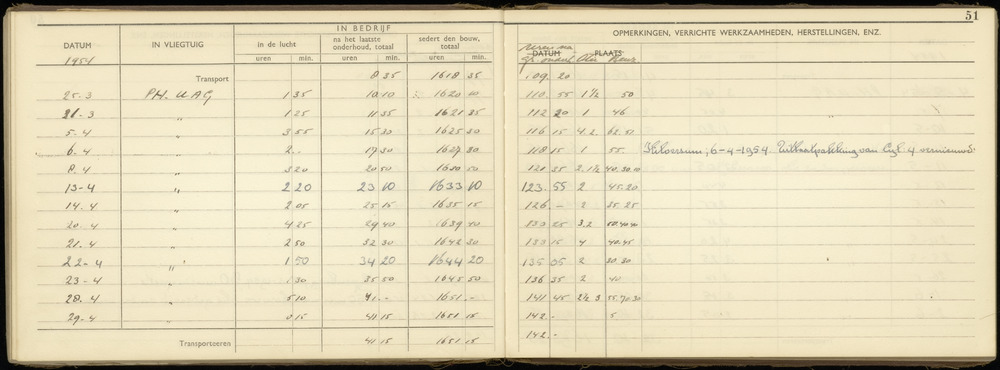 51
IN BEDRIJF
OPMERKINGEN, VERRICHTE WERKZAAMHEDEN, HERSTELLINGEN, ENZ.
DATUM IN VLIEGTUIG in de lucht na het laatste onderhoud, totaal sedert den bouw, totaal DATUM PLAATS
1954 uren min. uren min. uren min.
Transport 8 35 1618 35 109 20
25-3 PH. UAG 1 35 10 10 1620 10 110 55 1½ 50
31-3 " 1 25 11 35 1621 35 112 20 1 46
5-4 " 3 55 15 30 1625 30 116 15 4.2 62.51
6-4 " 2.- 17 30 1627 30 118 15 1 55 Hilversum, 6-4-1954 Uitlaatpakking van Cyl 4 vernieuwd.
8.4 " 3 20 20 50 1630 50 121 35 2.1½ 40.30.10
13-4 " 2 20 23 10 1633 10 123 55 2 45.20
14.4 " 2 05 25 15 1635 15 126 - 2 35.25
20.4 " 4 25 29 40 1639 40 130 25 3.2
21.4 " 2 50 32 30 1642 30 133 15 4 40.45
22-4 " 1 50 34 20 1644 20 135 05 2 20.30
23-4 " 1 30 35 50 1645 50 136 35 2 40
28.4 " 5 10 41 - 1651 - 141 45 2½ 3 55.70.30
29-4 " 0 15 41 15 1651 15 142 - 5
Transporteeren 41 15 1651 15 142 -